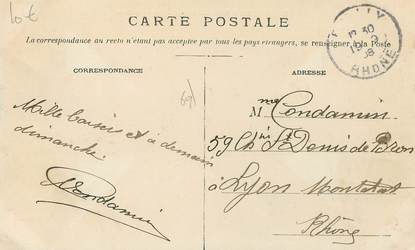 10 €
CARTE POSTALE
La correspondance au recto n'étant pas acceptée par tous les pays étrangers, se renseigner à la Poste
CORRESPONDANCE
ADRESSE
RHONE
Mille baisers et à demain
dimanche.
Condamin
Mme Condamin
59 Chin St Denis de Bron
à Lyon Montchat
Rhône